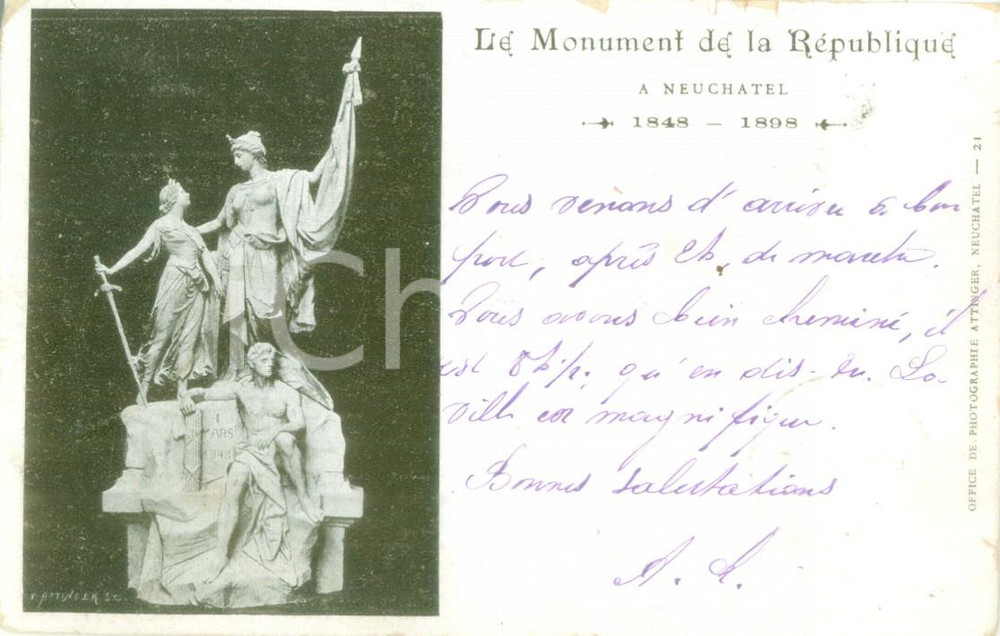 Le Monument de la République
A NEUCHATEL
1848 — 1898
Nous venons d'arriver à bon
port, après de marche.
Nous avons bien cheminé, il
est qu'en dis-tu. La
ville est magnifique.
Bonnes salutations
A. L.
OFFICE DE PHOTOGRAPHIE ATTINGER, NEUCHATEL — 21
1
MARS
1848
V. ATTINGER SC.
ich